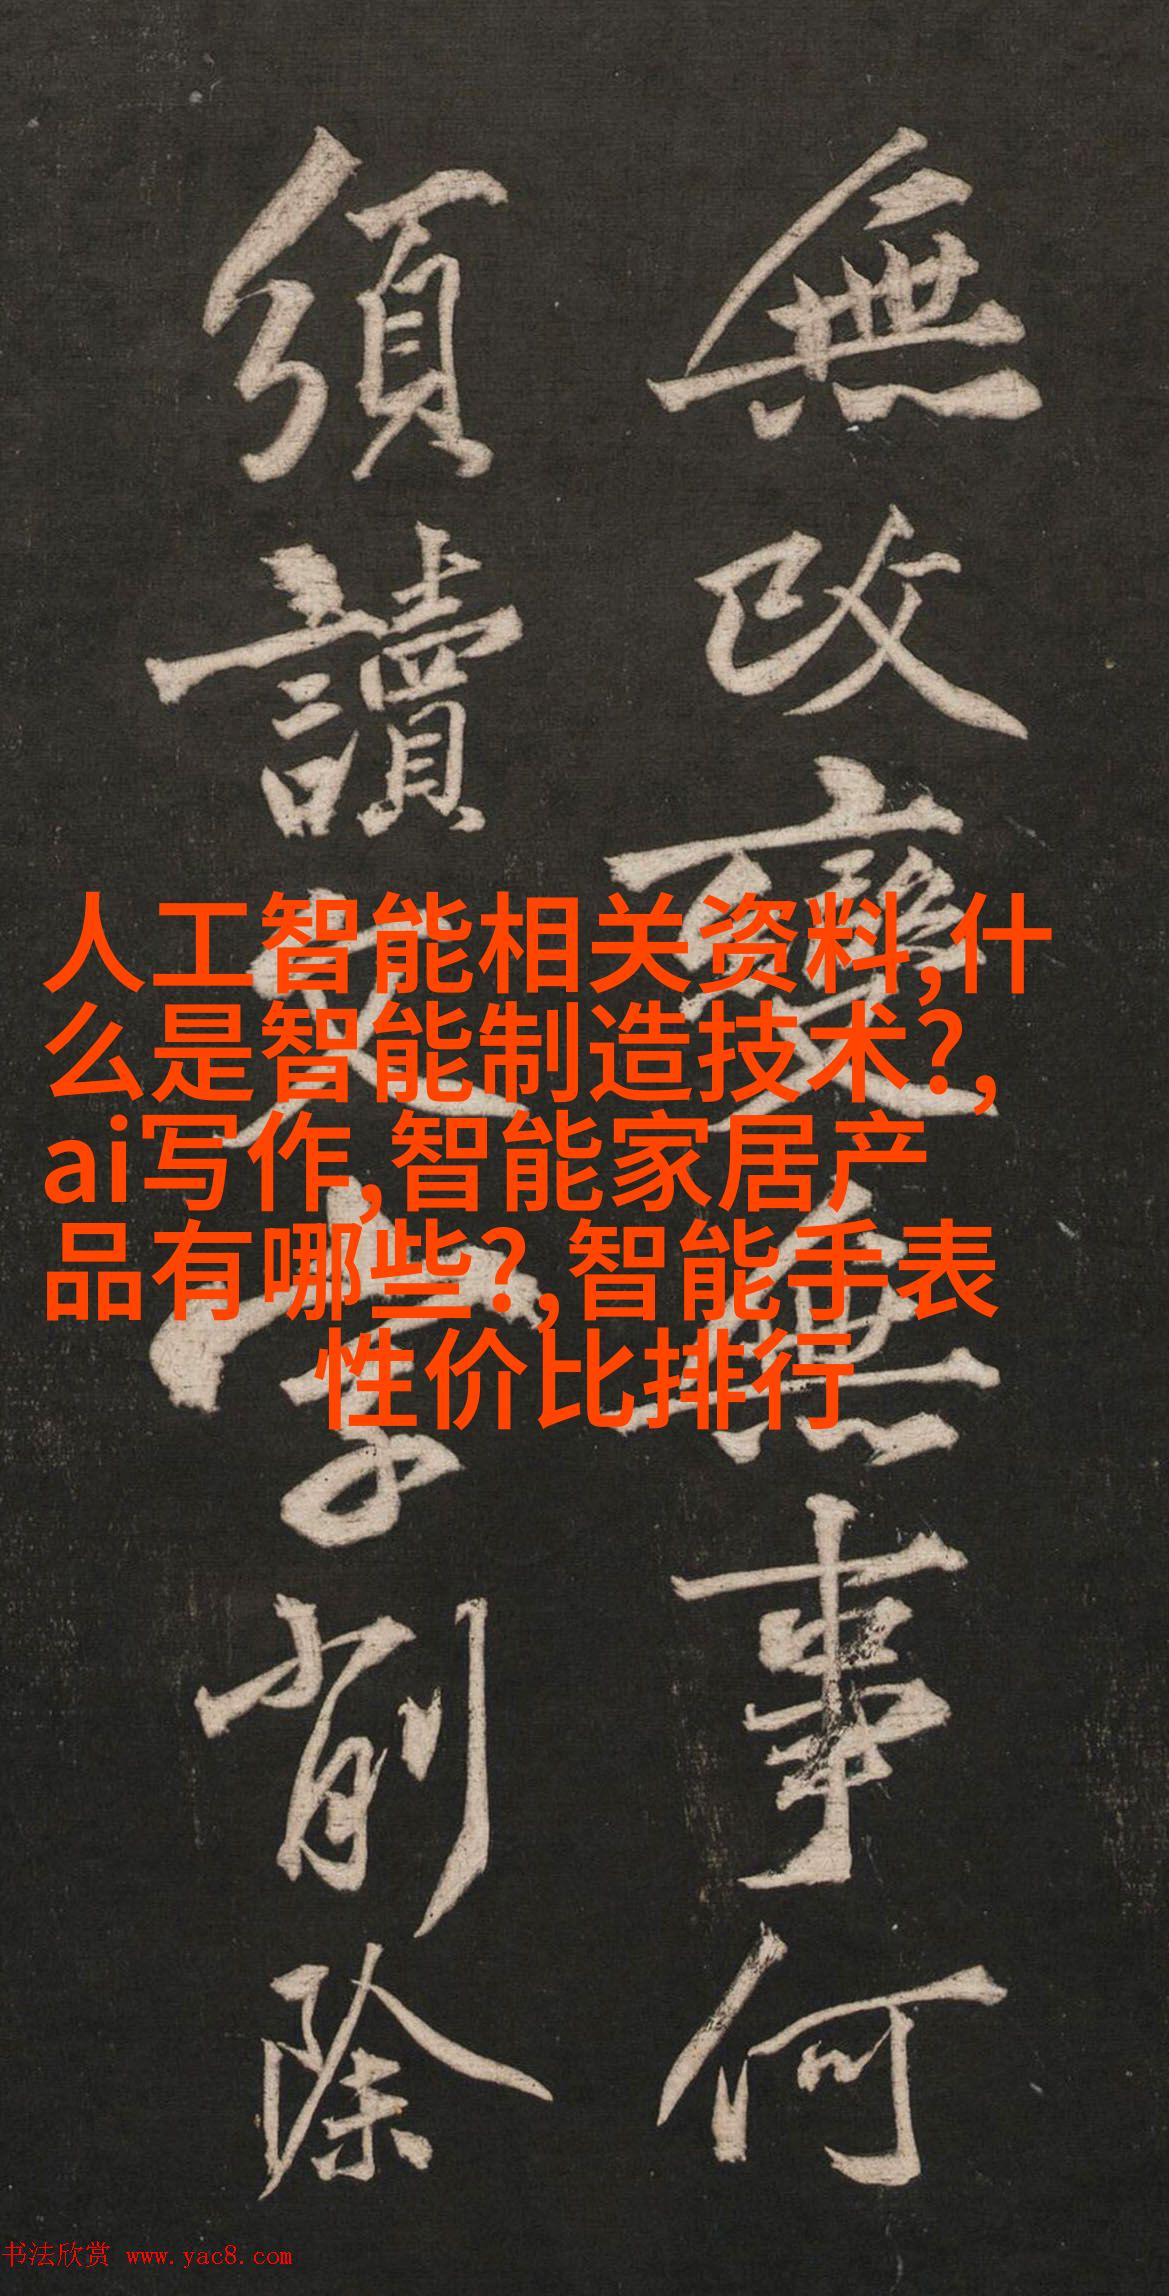 無改變無事何
須讀字削除
人工智能相关资料,什
么是智能制造技术?,
ai写作,智能家居产
品有哪些?,智能手表
性价比排行
书法欣赏 www.yac8.com